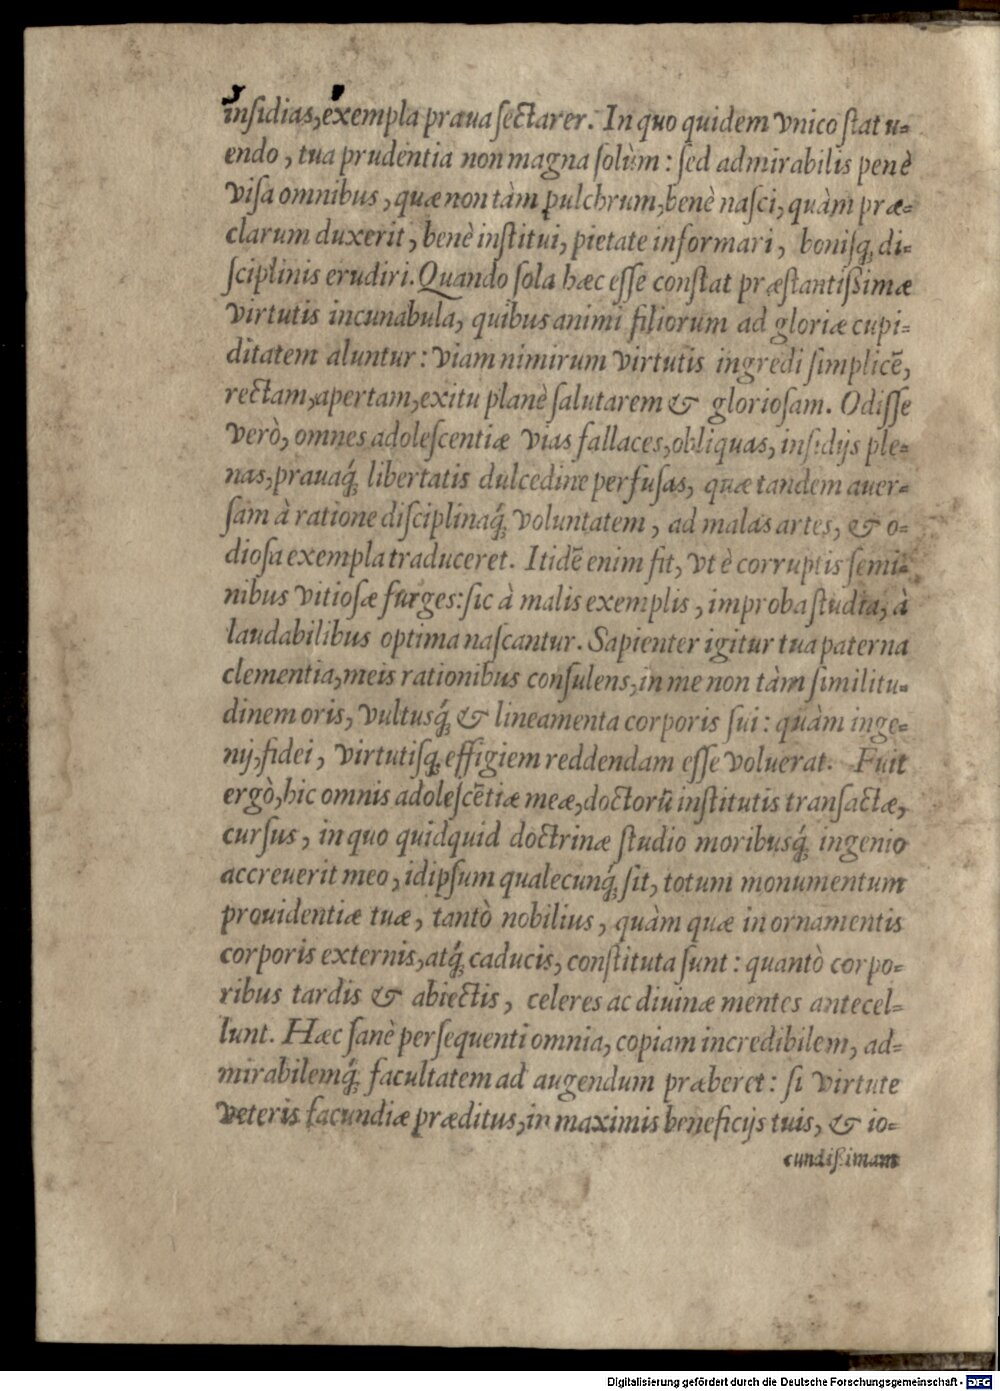 inſidias, exempla praua ſectarer. In quo quidem vnico ſtatu⸗
endo, tua prudentia non magna ſolùm: ſed admirabilis penè
viſa omnibus, quæ non tàm pulchrum, benè naſci, quàm præ⸗
clarum duxerit, benè inſtitui, pietate informari, boniſq́; di⸗
ſciplinis erudiri. Quando ſola hæc eſſe conſtat præſtantiſsimæ
virtutis incunabula, quibus animi filiorum ad gloriæ cupi⸗
ditatem aluntur: viam nimirum virtutis ingredi ſimplicē,
rectam, apertam, exitu planè ſalutarem & glorioſam. Odiſſe
verò, omnes adoleſcentiæ vias fallaces, obliquas, inſidijs ple⸗
nas, prauaq́; libertatis dulcedine perfuſas, quæ tandem auer⸗
ſam à ratione diſciplinaq́; voluntatem, ad malas artes, & o⸗
dioſa exempla traduceret. Itidē enim fit, vt è corruptis ſemi⸗
nibus vitioſæ ſurges: ſic à malis exemplis, improba ſtudia, à
laudabilibus optima naſcantur. Sapienter igitur tua paterna
clementia, meis rationibus conſulens, in me non tàm ſimilitu⸗
dinem oris, vultusq́; & lineamenta corporis ſui: quàm inge⸗
nij, fidei, virtutiſq; effigiem reddendam eſſe voluerat. Fuit
ergò, hic omnis adoleſcētiæ meæ, doctorū inſtitutis tranſactæ,
curſus, in quo quidquid doctrinæ ſtudio moribusq́; ingenio
accreuerit meo, idipſum qualecunq́; ſit, totum monumentum
prouidentiæ tuæ, tantò nobilius, quàm quæ in ornamentis
corporis externis, atq́; caducis, conſtituta ſunt: quantò corpo⸗
ribus tardis & abiectis, celeres ac diuinæ mentes antecel⸗
lunt. Hæc ſanè perſequenti omnia, copiam incredibilem, ad⸗
mirabilemq́; facultatem ad augendum præberet: ſi virtute
veteris facundiæ præditus, in maximis beneficijs tuis, & io⸗
cundiſsimam
Digitalisierung gefördert durch die Deutsche Forschungsgemeinschaft - DFG